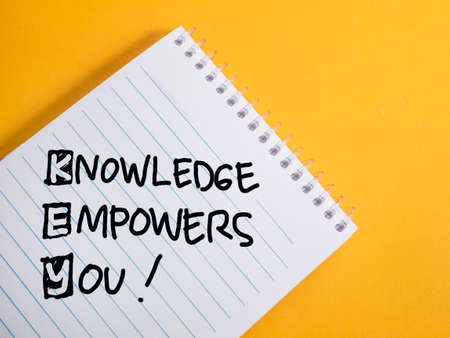 KNOWLEDGE
EMPOWERS
YOU!